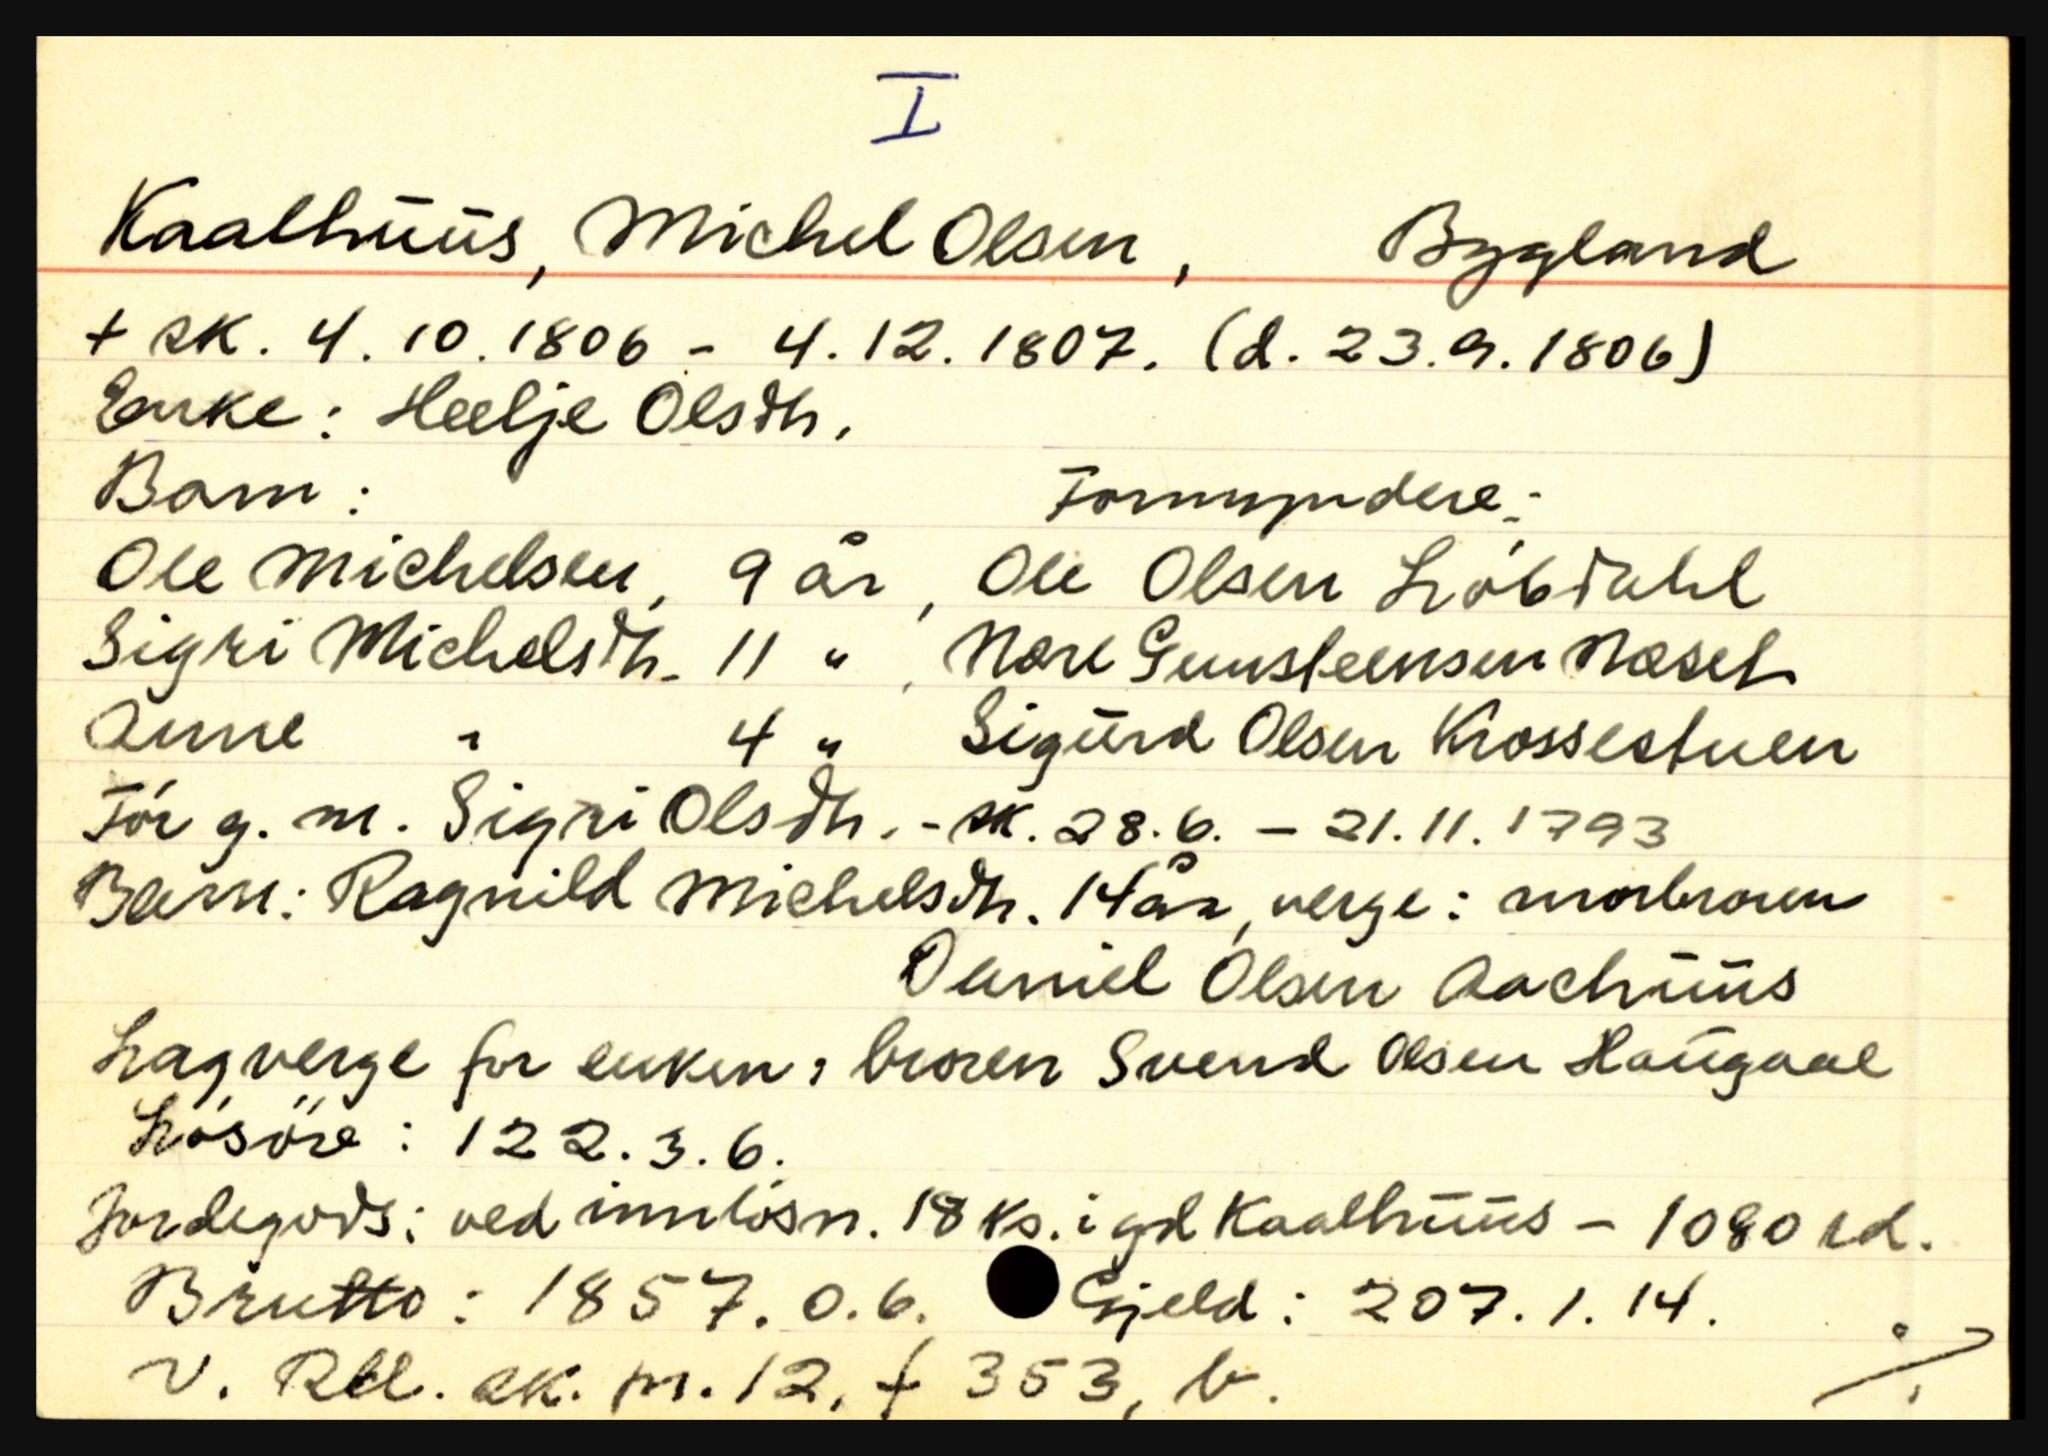 I
Kaalhuus, Michel Olsen, Bygland
+ sk. 4.10.1806 - 4.12.1807. (d. 23.9.1806)
Enke: Heelje Olsdh.
Barn: Formyndere:
Ole Michelsen, 9 år, Ole Olsen Löbdahl
Sigri Michelsdh. 11 ", Nore Gunsteensen Næset
Anne " 4 " Sigurd Olsen Krossestuen
För g. m. Sigri Olsdh. - sk. 28.6. - 21.11.1793
Barn: Ragnild Michelsdh. 14 år, verge: morbroren
Daniel Olsen Aachuus
Lagverge for enken: broren Svend Olsen Haugaae
Lösöre: 122.3.6.
Jordegods: ved innlösn. 18 ks. i gd Kaalhuus - 1080 rd.
Brutto: 1857.0.6. Gjeld: 207.1.14.
V. Rbl. sk. pr. 12, f 353, b. ./.